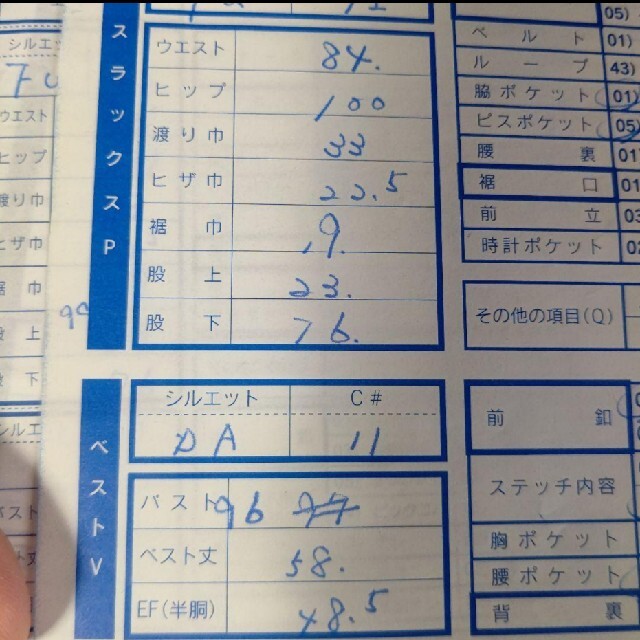 スラックスP
ウエスト 84.
ヒップ 100
渡り巾 33
ヒザ巾 22.5
裾巾 19.
股上 23.
股下 76.
ベストV
シルエット C#
DA 11
バスト 96
ベスト丈 58.
EF(半胴) 48.5
05)
ベルト 01)
ループ 43)
脇ポケット 01)
ピスポケット 05)
腰裏 01
裾口 01
前立 03
時計ポケット 02
その他の項目(Q)
前釦
ステッチ内容
胸ポケット
腰ポケット
背裏
シルエ
ウエスト
ヒップ
渡り巾
ヒザ巾
裾巾
股上
股下
シルエ
バスト